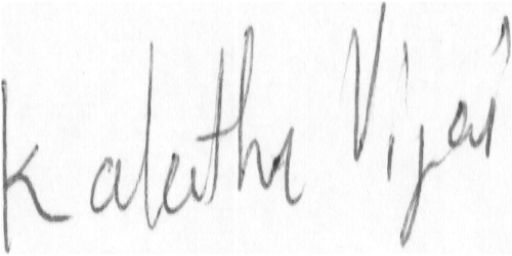 Kalathi Vijai